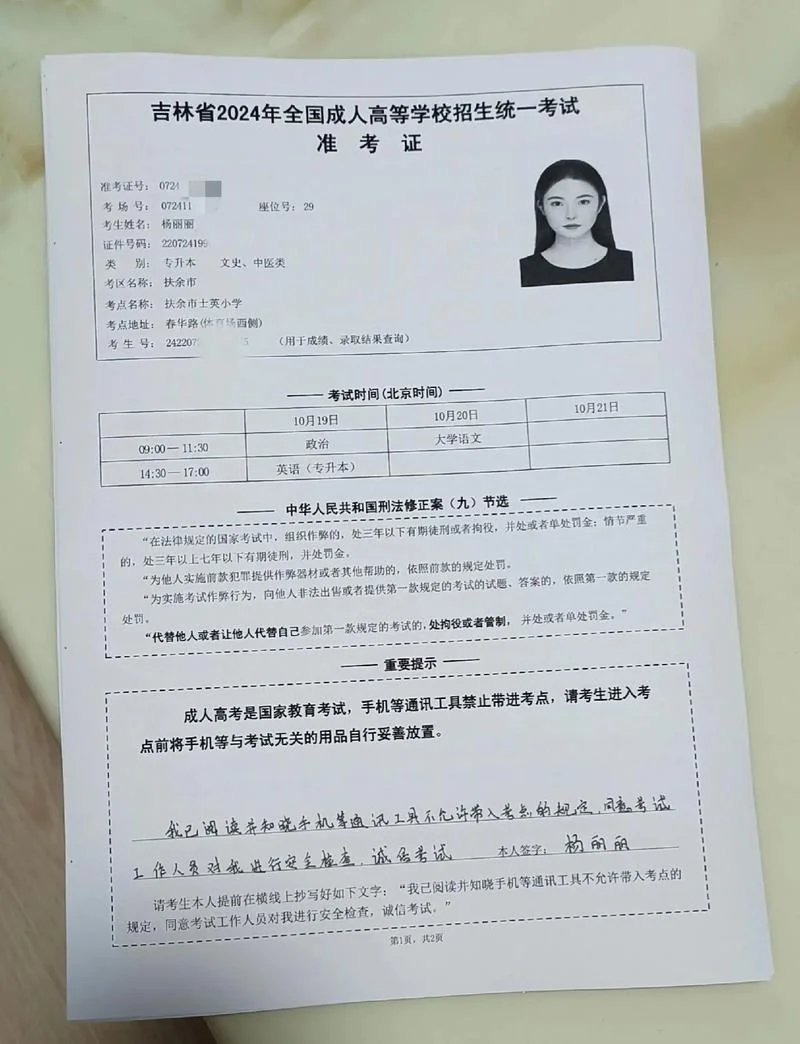 吉林省2024年全国成人高等学校招生统一考试
准 考 证
准考证号： 0724
考 场 号： 072411 座位号： 29
考生姓名： 杨丽丽
证件号码： 220724199
类 别： 专升本 文史、中医类
考区名称： 扶余市
考点名称： 扶余市士英小学
考点地址： 春华路(体育场西侧)
考 生 号： 242207 5 （用于成绩、录取结果查询）
考试时间(北京时间)
10月19日 10月20日 10月21日
09:00—11:30 政治 大学语文
14:30—17:00 英语（专升本）
中华人民共和国刑法修正案（九）节选
“在法律规定的国家考试中，组织作弊的，处三年以下有期徒刑或者拘役，并处或者单处罚金；情节严重
的，处三年以上七年以下有期徒刑，并处罚金。
“为他人实施前款犯罪提供作弊器材或者其他帮助的，依照前款的规定处罚。
“为实施考试作弊行为，向他人非法出售或者提供第一款规定的考试的试题、答案的，依照第一款的规定
处罚。
“代替他人或者让他人代替自己参加第一款规定的考试的，处拘役或者管制，并处或者单处罚金。”
重要提示
成人高考是国家教育考试，手机等通讯工具禁止带进考点，请考生进入考
点前将手机等与考试无关的用品自行妥善放置。
我已阅读并知晓手机等通讯工具不允许带入考点的规定，同意考试
工作人员对我进行安全检查，诚信考试 本人签字： 杨丽丽
请考生本人提前在横线上抄写好如下文字：“我已阅读并知晓手机等通讯工具不允许带入考点的
规定，同意考试工作人员对我进行安全检查，诚信考试。”
第1页，共2页